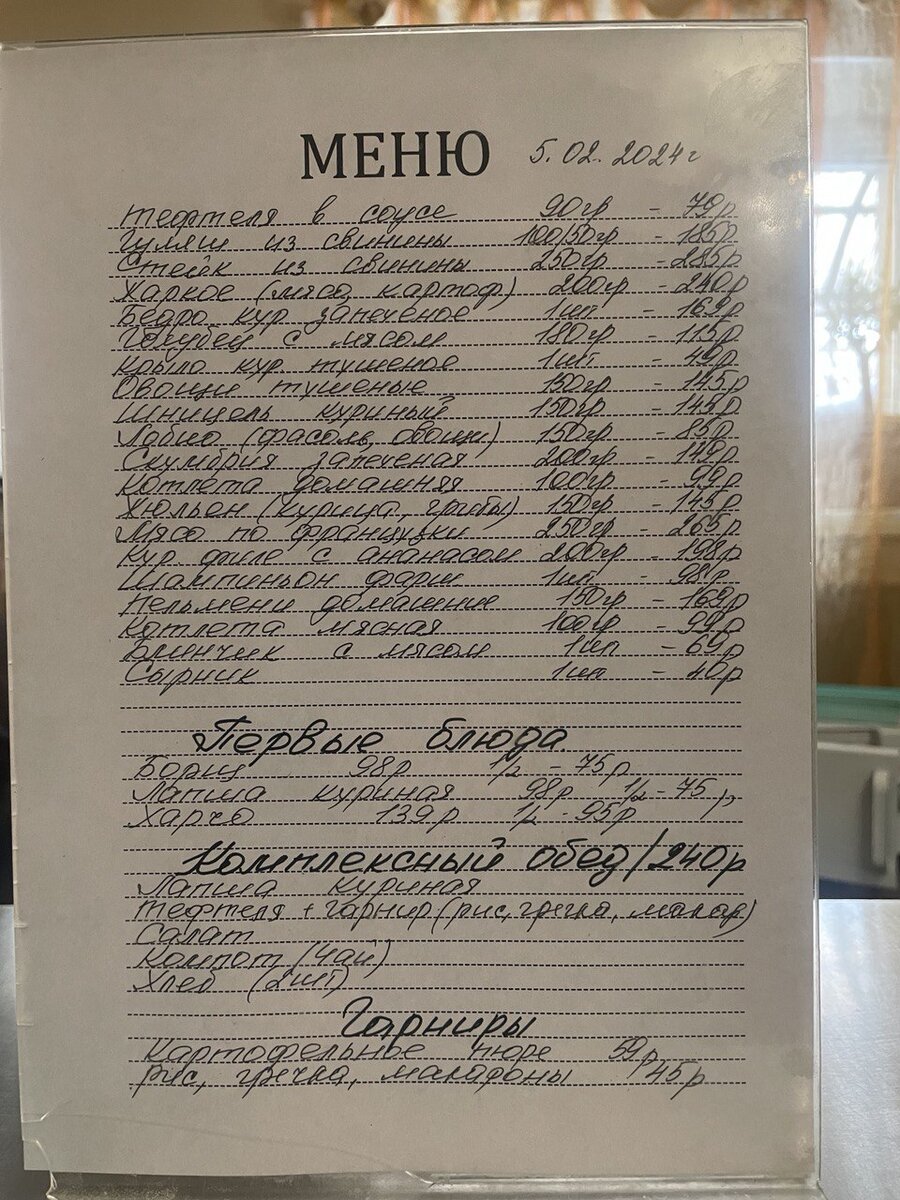 МЕНЮ 5.02.2024г
Тефтеля в соусе 90гр - 79р
Гуляш из свинины 100/50гр - 185р
Стейк из свинины 250гр - 285р
Харкое (мясо, картоф) 200гр - 240р
Бедро кур запеченое 1шт - 169р
Голубец с мясом 180гр - 115р
Крыло кур. тушеное 1шт - 49р
Овощи тушеные 150гр - 145р
Шницель куриный 150гр - 145р
Лобио (фасоль, овощи) 150гр - 85р
Скумбрия запеченая 200гр - 149р
Котлета домашняя 100гр - 99р
Жюльен (курица, грибы) 150гр - 145р
Мясо по французки 250гр - 265р
Кур. филе с ананасом 200гр - 198р
Шампиньон фарш 1шт - 98р
Пельмени домашние 150гр - 169р
Котлета мясная 100гр - 99р
Блинчик с мясом 1шт - 69р
Сырник 1шт - 40р
Первые блюда
Борщ 98р 1/2 - 75р
Лапша куриная 98р 1/2 - 75р
Харчо 139р 1/2 - 95р
Комплексный обед/240р
Лапша куриная
Тефтеля + гарнир (рис, гречка, макар)
Салат
Компот (чай)
Хлеб (2шт)
Гарниры
Картофельное пюре 59р
Рис, гречка, макароны 45р